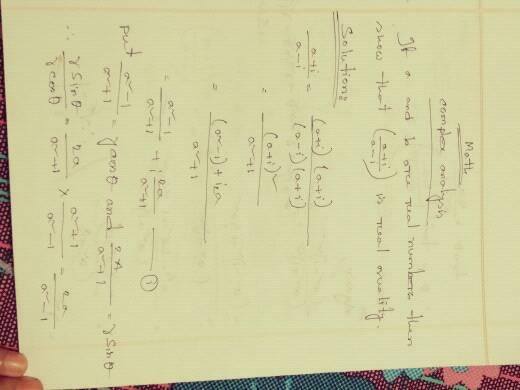 Math
complex analysis
If a and b are real numbers then
show that (a+i/a-i) is real quality.
Solution:
a+i/a-i = (a+i)(a+i)/(a-i)(a+i)
= (a+i)²/a²+1
= (a²-1)+i2a/a²+1
= a²-1/a²+1 + i 2a/a²+1 — (i)
put a²-1/a²+1 = γcosθ and 2a/a²+1 = γsinθ
∴ γsinθ/γcosθ = 2a/a²+1 × a²+1/a²-1 = 2a/a²-1